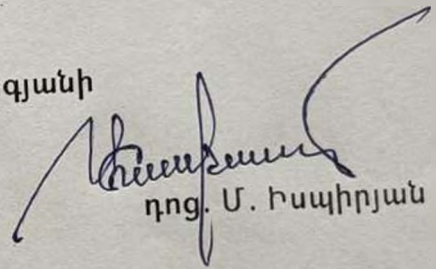 գյանի
դոց. Մ. Իսպիրյան